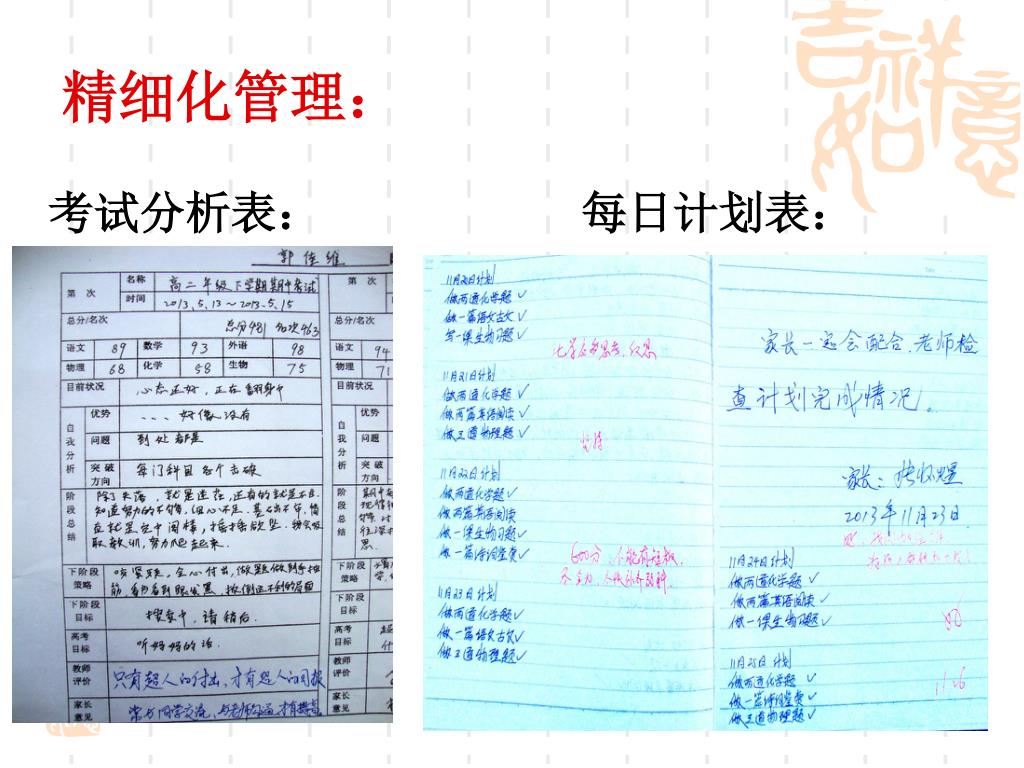 吉祥如意
精细化管理：
考试分析表：
每日计划表：
郭佳维
第 次
名称
高二年级下学期期中考试
时间
2013.5.13～2013.5.15
总分/名次
总分481 名次463
语文 89 数学 93 外语 98
物理 68 化学 58 生物 75
目前状况
心态还好，正在翻身中
自我分析
优势
好像没有
问题
到处都是
突破方向
每门科目各个击破
阶段总结
除了失落，就是迷茫，还有的就是不甘
知道努力的不够，但心不足，基础不牢
取教训，努力爬起来。
下阶段策略
下阶段目标
搜索中，请稍后.
高考目标
听妈妈的话.
教师评价
只有超人的付出，才有超人的回报
家长意见
常与同学交流，与老师沟通，才有提高
第 次
总分/名次
语文 94
物理 71
目前状况
自我分析
优势
问题
突破方向
阶段总结
下阶段策略
下阶段目标
高考目标
教师评价
家长意见
11月20日计划
做两道化学题✓
做一篇语文古文✓
写一课生物习题✓
11月21日计划
做两道化学题✓
做两篇英语阅读✓
做三道物理题✓
坚持
11月22日计划
做两道化学题✓
做两篇英语阅读
做一课生物习题✓
做一篇诗词鉴赏✓
11月23日计划
做两道化学题✓
做一篇语文古文✓
做三道物理题✓
家长一定会配合老师检
查计划完成情况。
家长：
2013年11月23日
11月24日计划
做两道化学题✓
做两篇英语阅读✓
做一课生物习题✓
11月25日计划
做两道化学题✓
做一篇诗词鉴赏✓
做三道物理题✓
11.26